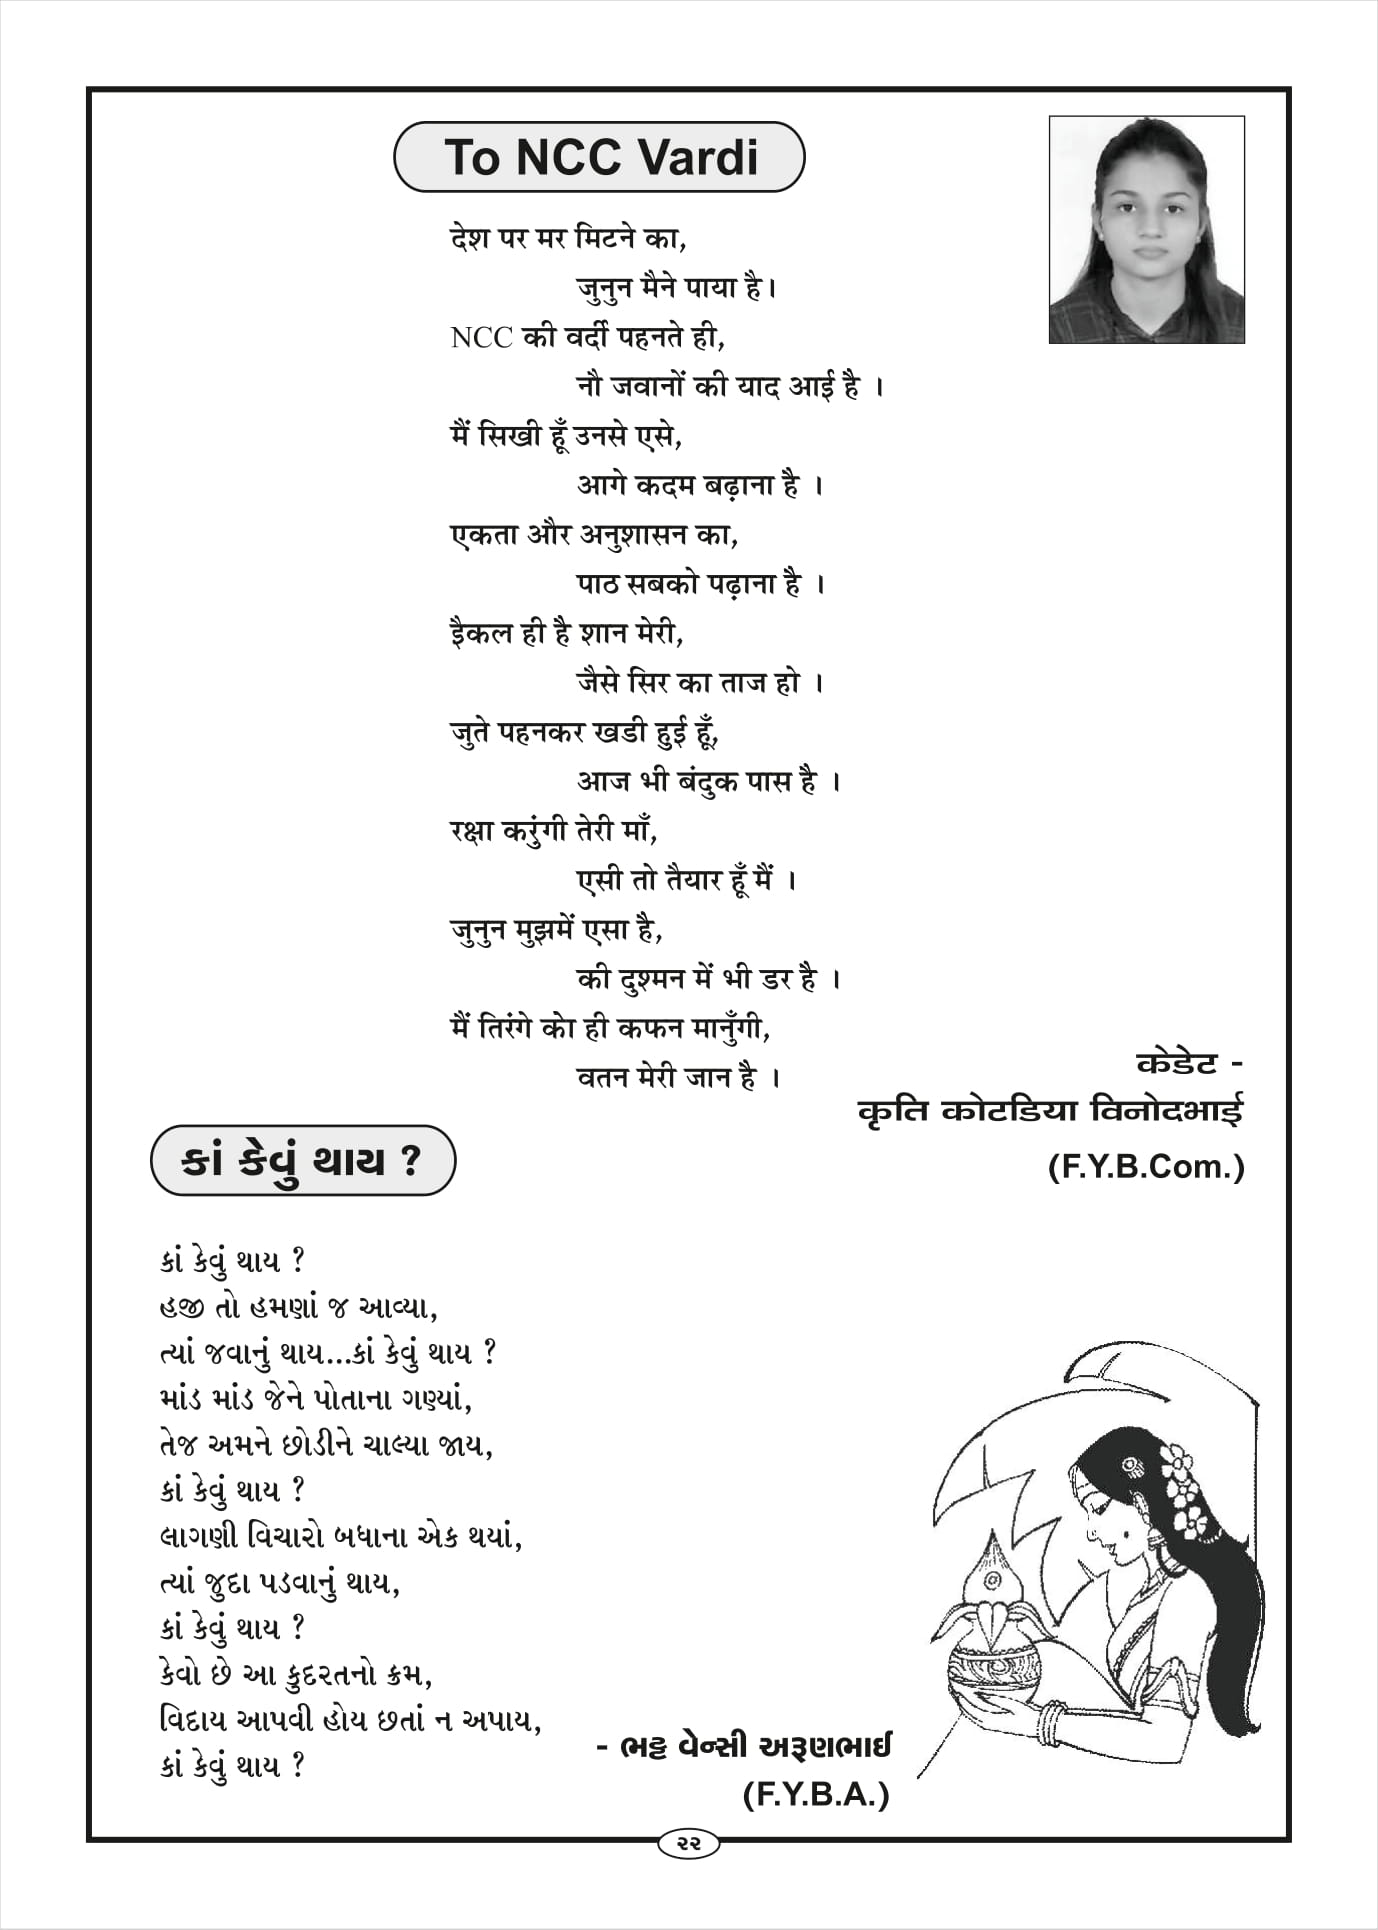 To NCC Vardi
देश पर मर मिटने का,
जुनुन मैने पाया है।
NCC की वर्दी पहनते ही,
नौ जवानों की याद आई है ।
मैं सिखी हूँ उनसे एसे,
आगे कदम बढ़ाना है ।
एकता और अनुशासन का,
पाठ सबको पढ़ाना है ।
हैकल ही है शान मेरी,
जैसे सिर का ताज हो ।
जुते पहनकर खडी हुई हूँ,
आज भी बंदुक पास है ।
रक्षा करुंगी तेरी माँ,
एसी तो तैयार हूँ मैं ।
जुनुन मुझमें एसा है,
की दुश्मन में भी डर है ।
मैं तिरंगे को ही कफन मानुँगी,
वतन मेरी जान है ।
केडेट -
कृति कोटडिया विनोदभाई
(F.Y.B.Com.)
કાં કેવું થાય ?
કાં કેવું થાય ?
હજી તો હમણાં જ આવ્યા,
ત્યાં જવાનું થાય...કાં કેવું થાય ?
માંડ માંડ જેને પોતાના ગણ્યાં,
તેજ અમને છોડીને ચાલ્યા જાય,
કાં કેવું થાય ?
લાગણી વિચારો બધાના એક થયાં,
ત્યાં જુદા પડવાનું થાય,
કાં કેવું થાય ?
કેવો છે આ કુદરતનો ક્રમ,
વિદાય આપવી હોય છતાં ન અપાય,
કાં કેવું થાય ?
- ભટ્ટ વેન્સી અરૂણભાઈ
(F.Y.B.A.)
૨૨